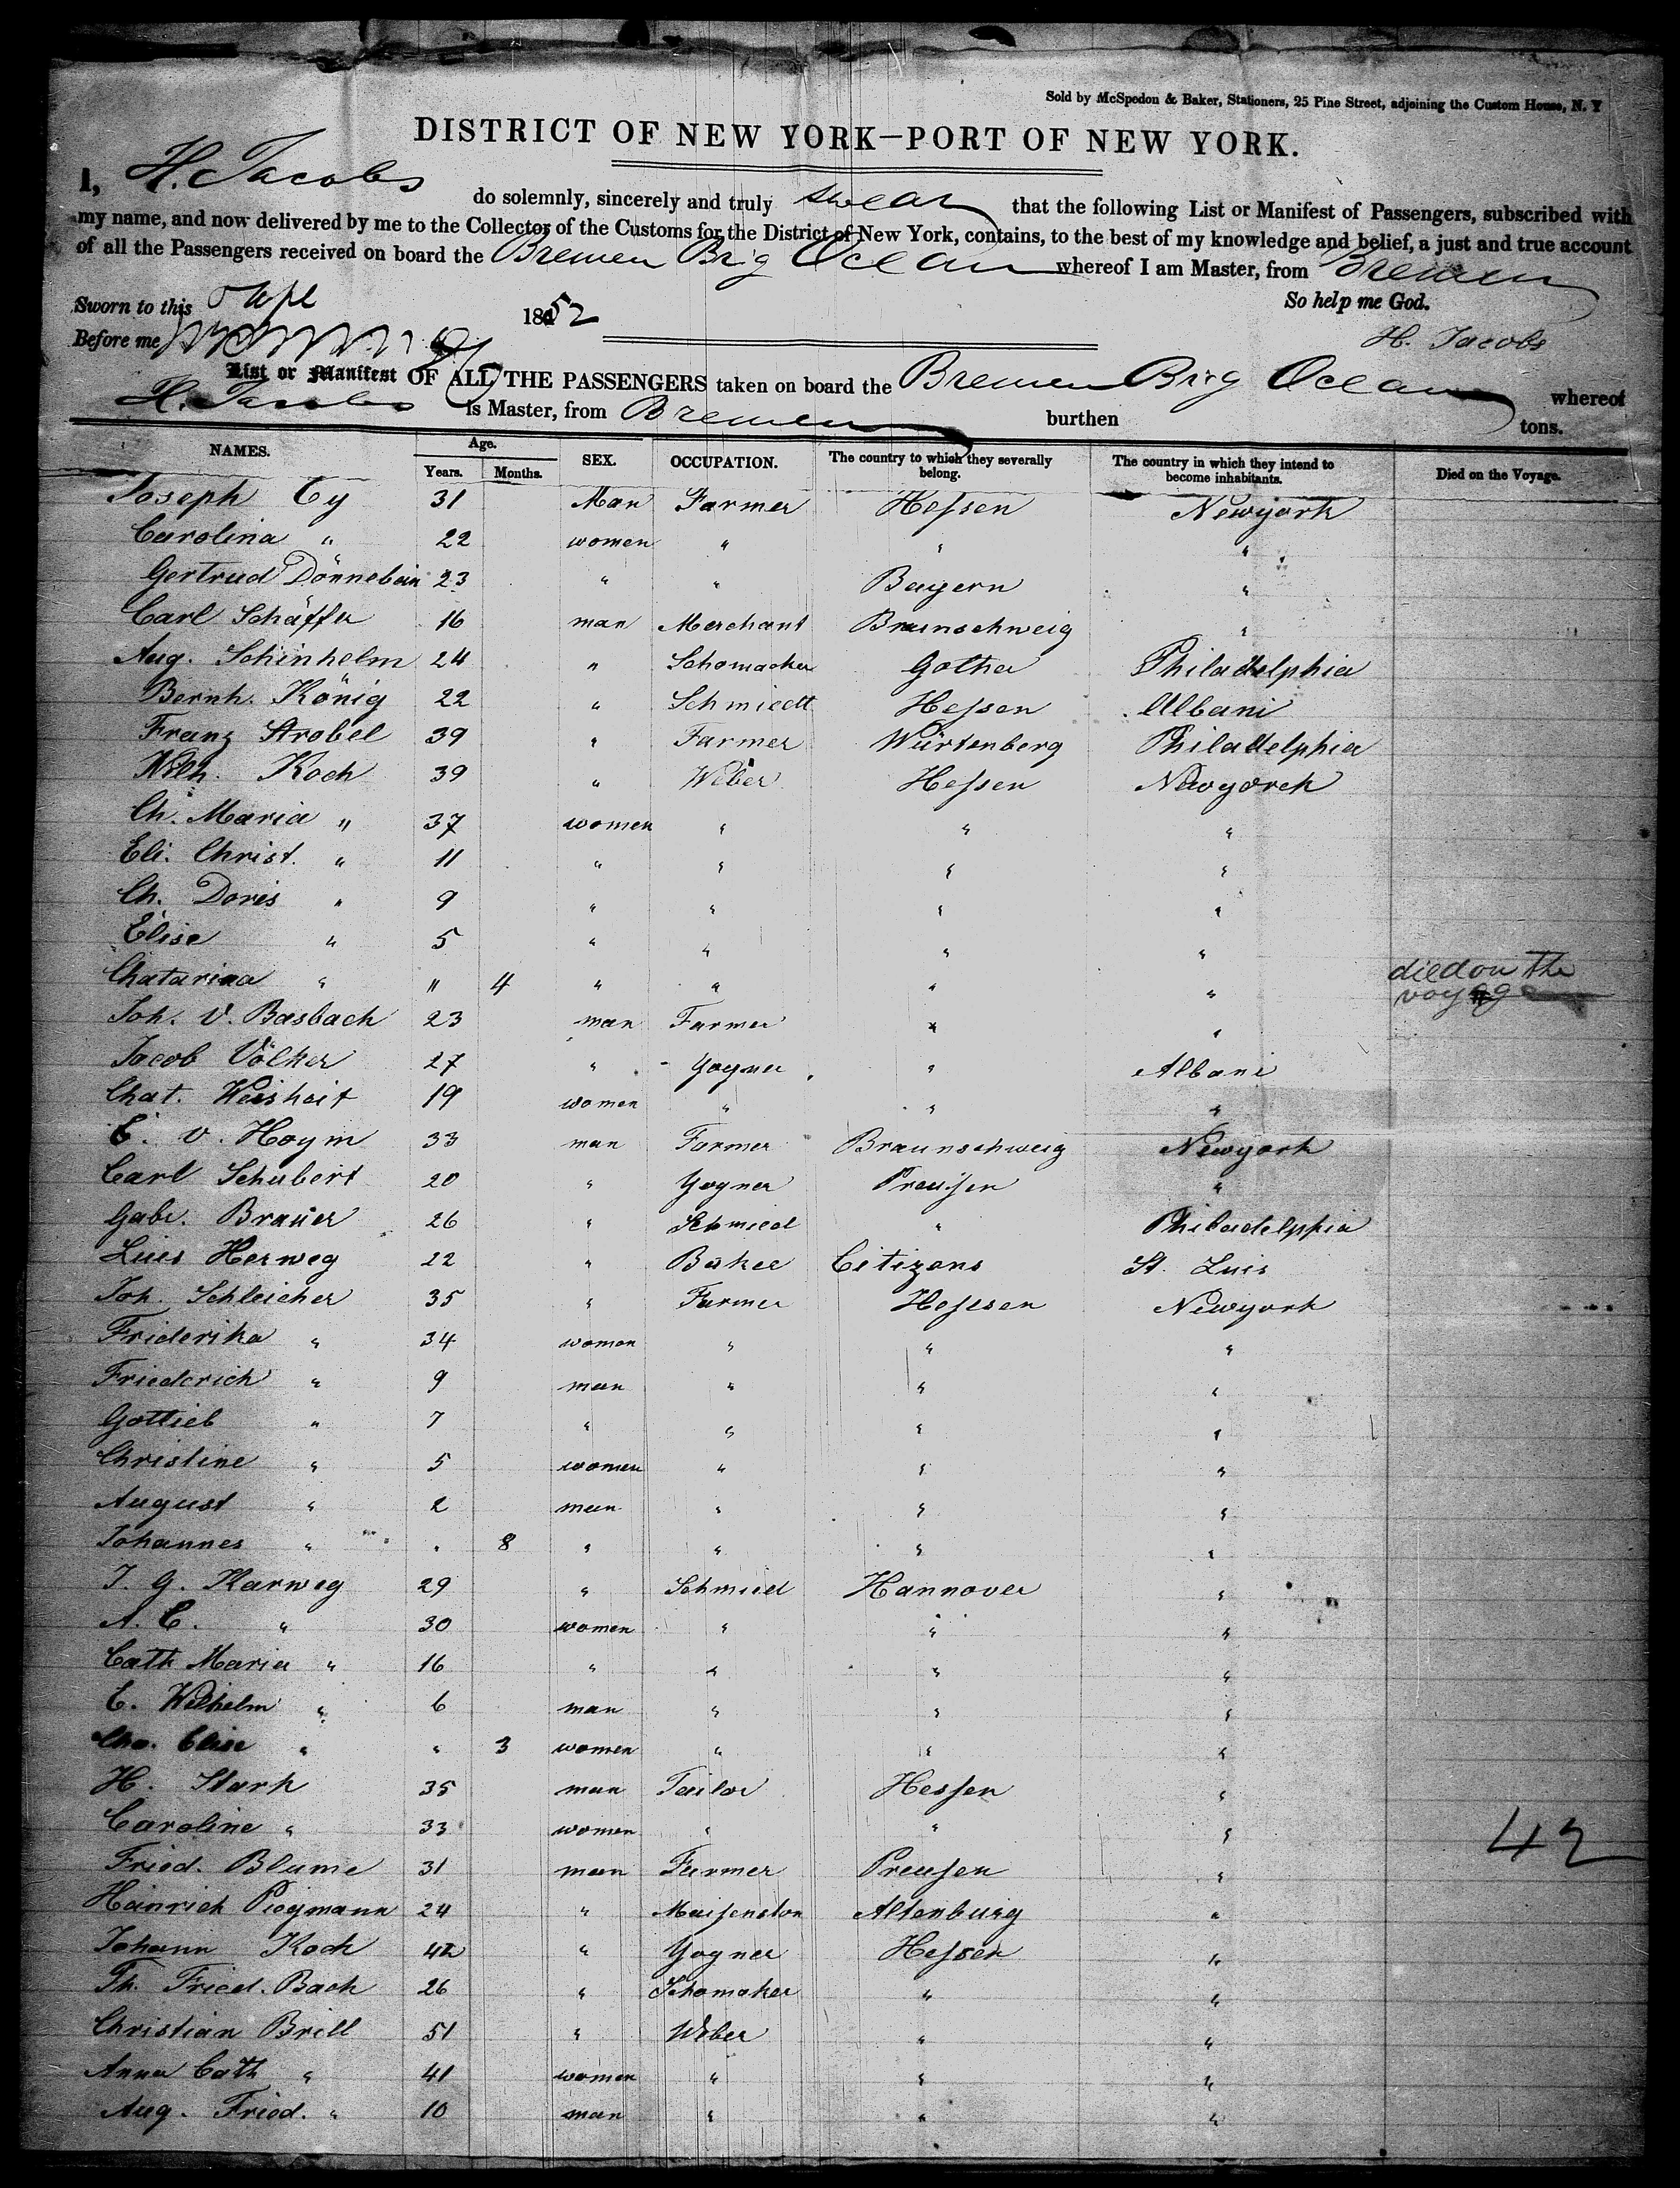 Sold by McSpedon & Baker, Stationers, 25 Pine Street, adjoining the Custom House, N. Y
DISTRICT OF NEW YORK—PORT OF NEW YORK.
I, H. Jacobs do solemnly, sincerely and truly swear that the following List or Manifest of Passengers, subscribed with
my name, and now delivered by me to the Collector of the Customs for the District of New York, contains, to the best of my knowledge and belief, a just and true account
of all the Passengers received on board the Bremen Brig Ocean whereof I am Master, from Bremen
Sworn to this 1852 So help me God.
Before me H. Jacobs
List or Manifest OF ALL THE PASSENGERS taken on board the Bremen Brig Ocean whereof
H. Jacobs is Master, from Bremen burthen tons.
NAMES. Age. Years. Months. SEX. OCCUPATION. The country to which they severally belong. The country in which they intend to become inhabitants. Died on the Voyage.
Joseph Ey 31 Man Farmer Hessen Newyork
Carolina " 22 women " " "
Gertrud Dönnebein 23 " " Bayern "
Carl Schäffer 16 man Merchant Braunschweig "
Aug. Schinhelm 24 " Schomacker Gotha Philadelphia
Bernh. König 22 " Schmiedt Hessen Albani
Franz Strobel 39 " Farmer Würtenberg Philadelphia
Wilh. Koch 39 " Weber Hessen Newyorck
Ch. Maria " 37 women " " "
Eli. Christ. " 11 " " " "
Ch. Doris " 9 " " " "
Elise " 5 " " " "
Chatarina " " 4 " " " " died on the voyage
Joh. V. Basbach 23 man Farmer " "
Jacob Völker 27 " Yogner " Albani
Chat. Weisheit 19 women " " "
E. v. Hoym 33 man Farmer Braunschweig Newyork
Carl Schubert 20 " Yogner Preussen "
Gabr. Brauer 26 " Schmied " Philadelphia
Luis Herweg 22 " Baker Citizens St. Luis
Joh. Schleicher 35 " Farmer Hessen Newyork
Friderika " 34 women " " "
Friederich " 9 man " " "
Gottlieb " 7 " " " "
Christine " 5 women " " "
August " 2 man " " "
Johannes " " 8 " " " "
J. G. Karweg 29 " Schmied Hannover "
A. C. " 30 women " " "
Cath Maria " 16 " " " "
E. Wilhelm " 6 man " " "
Cha. Elise " " 3 women " " "
H. Stark 35 man Tailor Hessen "
Caroline " 33 women " " "
Fried. Blume 31 man Farmer Preussen " 42
Heinrich 24 " Altenburg "
Johann Koch 42 " Yogner Hessen "
Th. Fried. Bach 26 " Schomaker " "
Christian Brill 51 " Weber " "
Anna Cath " 41 women " " "
Aug. Fried. " 10 man " " "